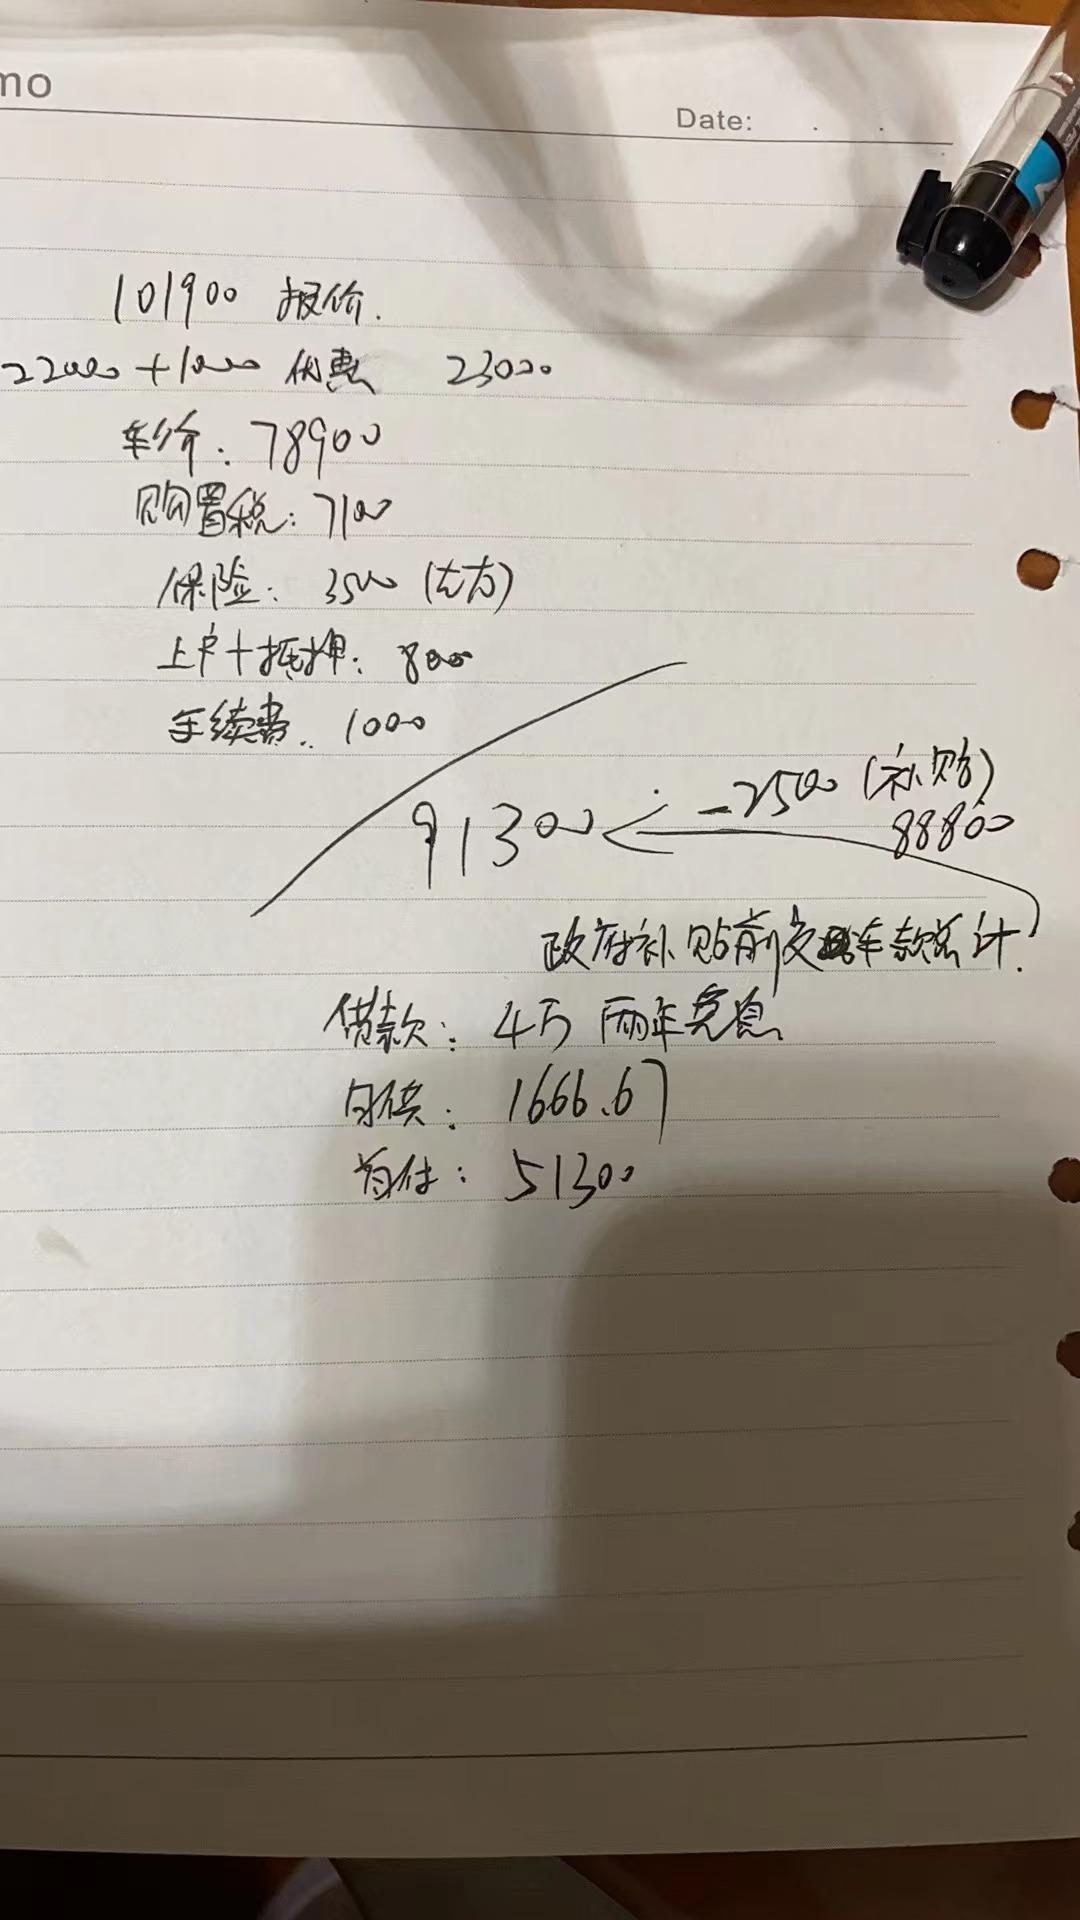 mo
Date: . .
101900 报价.
22000+1000 优惠 23000
车价: 78900
购置税: 7100
保险: 3500 (左右)
上户+抵押: 800
手续费: 1000
-2500 (补贴)
91300 88800
政府补贴前交车款总计.
借款: 4万 两年免息
月供: 1666.67
首付: 51300